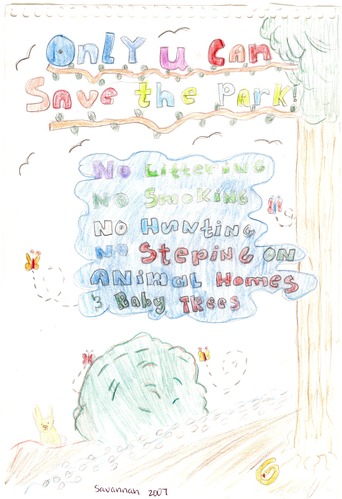 OnLY u Can
Save the Park!
No Littering
No Smoking
No Hunting
No Steping ON
ANiMal Homes
& Baby Trees
Savannah 2007